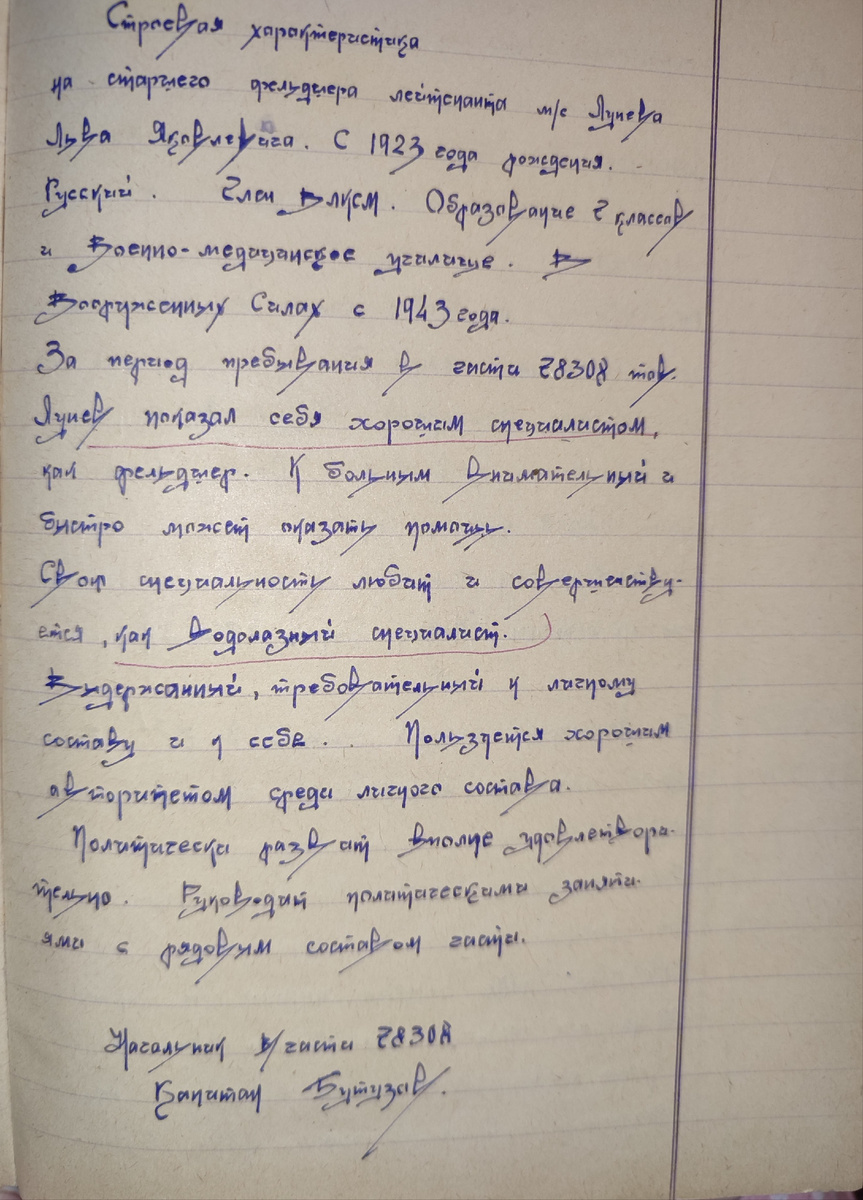 Строевая характеристика
на старшего фельдшера лейтенанта м/с Лунева
Льва Яковлевича. С 1923 года рождения.
Русский. Член ВЛКСМ. Образование 7 классов
и Военно-медицинское училище. В
Вооруженных Силах с 1943 года.
За период пребывания в части 78308 тов.
Лунев показал себя хорошим специалистом,
как фельдшер. К больным внимательный и
быстро может оказать помощь.
Свою специальность любит и совершенству-
ется, как водолазный специалист.
Выдержанный, требовательный к личному
составу и к себе. Пользуется хорошим
авторитетом среди личного состава.
Политически развит вполне удовлетвори-
тельно. Руководит политическими заняти-
ями с рядовым составом части.
Начальник в/части 78308
Капитан Бутузов.